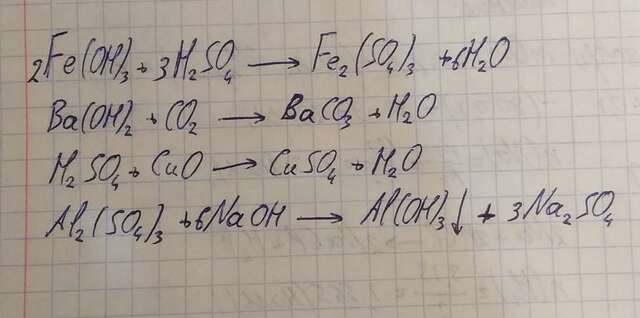 2Fe(OH)₃ + 3H₂SO₄ → Fe₂(SO₄)₃ + 6H₂O
Ba(OH)₂ + CO₂ → BaCO₃ + H₂O
H₂SO₄ + CuO → CuSO₄ + H₂O
Al₂(SO₄)₃ + 6NaOH → Al(OH)₃↓ + 3Na₂SO₄